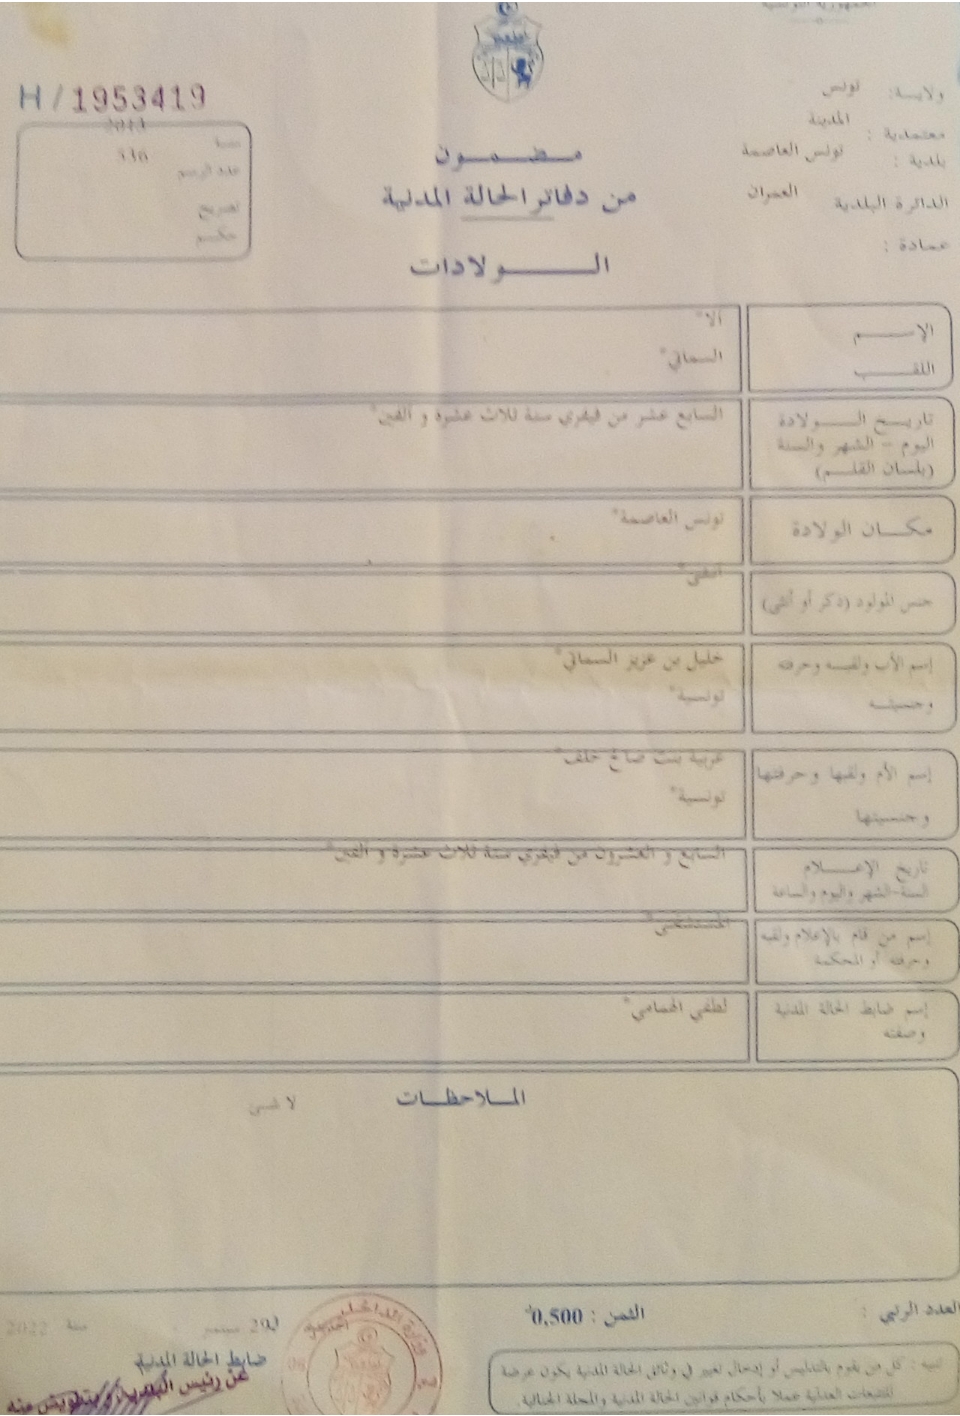 الجمهورية التونسية
ولاية: تونس
معتمدية : المدينة
بلدية : تونس العاصمة
الدائرة البلدية العمران
عمادة :
H / 1953419
سنة 2013
عدد الرسم 336
تصريح
حكم
مضمون
من دفاتر الحالة المدنية
الولادات
الإسم ألاء*
اللقب السماتي*
تاريخ الولادة السابع عشر من فيفري سنة ثلاث عشرة و ألفين*
اليوم - الشهر والسنة
(بلسان القلم)
مكان الولادة تونس العاصمة*
جنس المولود (ذكر أو أنثى) أنثى*
إسم الأب ولقبه وحرفته خليل بن عزيز السماتي*
وجنسيته تونسية*
إسم الأم ولقبها وحرفتها عربية بنت صالح خلف*
وجنسيتها تونسية*
تاريخ الإعلام السابع و العشرون من فيفري سنة ثلاث عشرة و ألفين*
السنة-الشهر واليوم والساعة
إسم من قام بالإعلام ولقبه المستشفى*
وحرفته أو المحكمة
إسم ضابط الحالة المدنية لطفي الحمامي*
وصفته
الملاحظات
لا شئ
العدد الرتبي :
الثمن : 0,500
29 سبتمبر سنة 2022
ضابط الحالة المدنية
عن رئيس البلدية وبتفويض منه
وزارة الداخلية
تنبيه : كل من يقوم بالتدليس أو إدخال تغيير في وثائق الحالة المدنية يكون عرضة
للتتبعات العدلية عملا بأحكام قوانين الحالة المدنية والمجلة الجنائية.